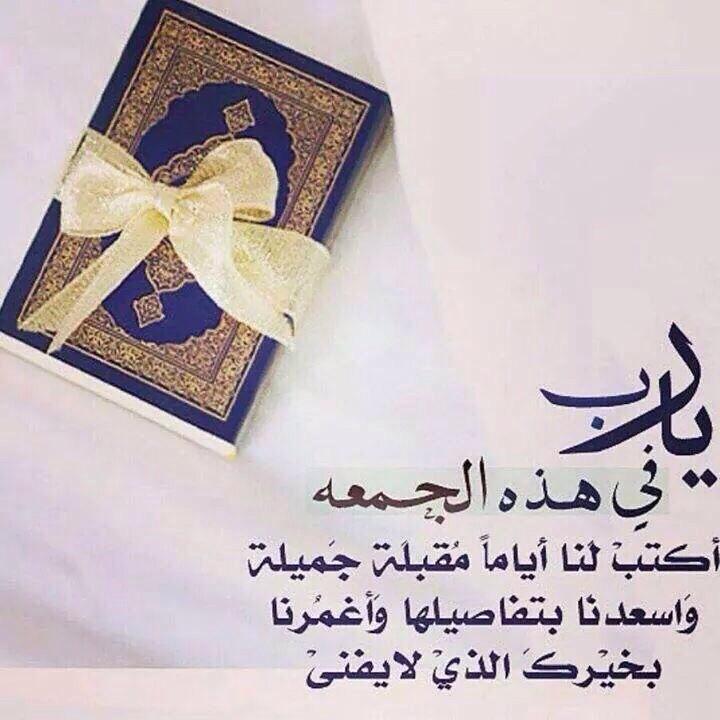 يارب
في هذه الجمعه
أكتبْ لنا أياماً مُقبلَة جَميلة
وَاسعدنا بتفاصيلها وَأغمُرنا
بخيْركَ الذيْ لايفنىْ